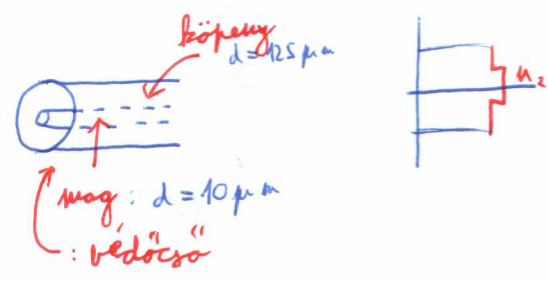 köpeny
d = 125 μm
n₂
mag : d = 10 μm
: védőcső